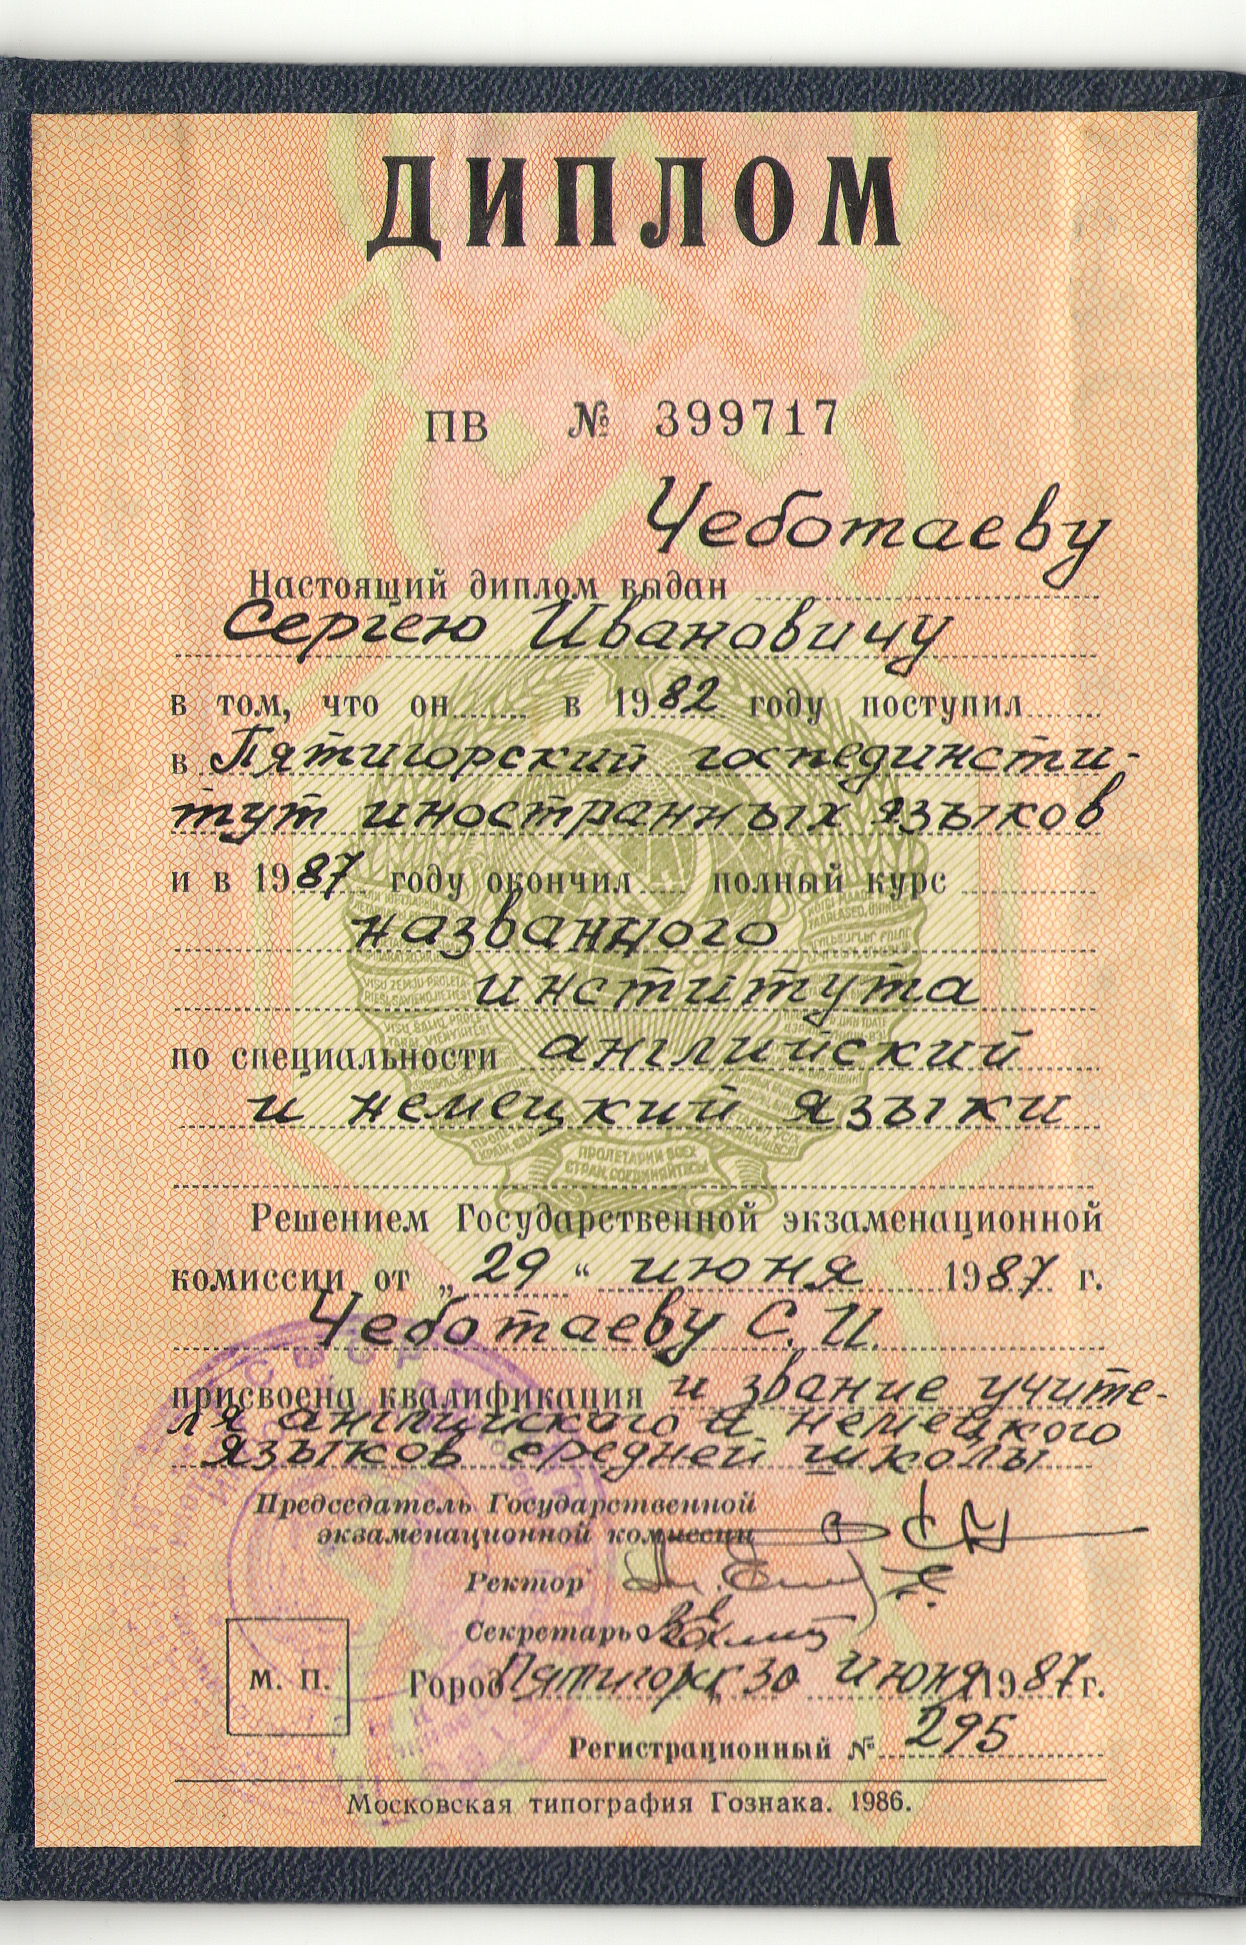 ДИПЛОМ
ПВ № 399717
Чеботаеву
Настоящий диплом выдан
Сергею Ивановичу
в том, что он в 1982 году поступил
в Пятигорский госпединсти-
тут иностранных языков
и в 1987 году окончил полный курс
названного
института
по специальности английский
и немецкий языки
Решением Государственной экзаменационной
комиссии от „29“ июня 1987 г.
Чеботаеву С. И.
присвоена квалификация и звание учите-
ля английского и немецкого
языков средней школы
Председатель Государственной
экзаменационной комиссии
Ректор
Секретарь
М. П.
Город Пятигорск 30 июня 1987 г.
Регистрационный № 295
Московская типография Гознака. 1986.
ПРОЛЕТАРИИ ВСЕХ
СТРАН, СОЕДИНЯЙТЕСЬ!